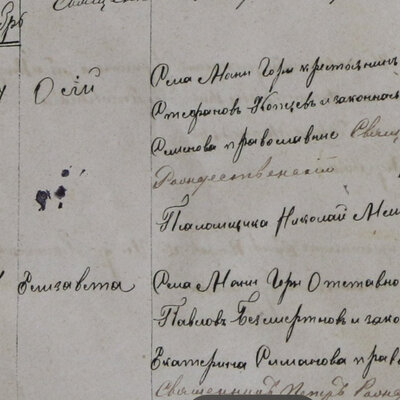 Осій
Села Мани Горы крестьянинъ
Стефановъ Копцевъ и законная
Семенова православные Свящ
Рождественскій
Паломщика Николай
Елизавета
Села Мани Горы Отставно
Павловъ Безсмертновъ и зако
Екатерина Романова прав
Священникъ Петръ Рожд